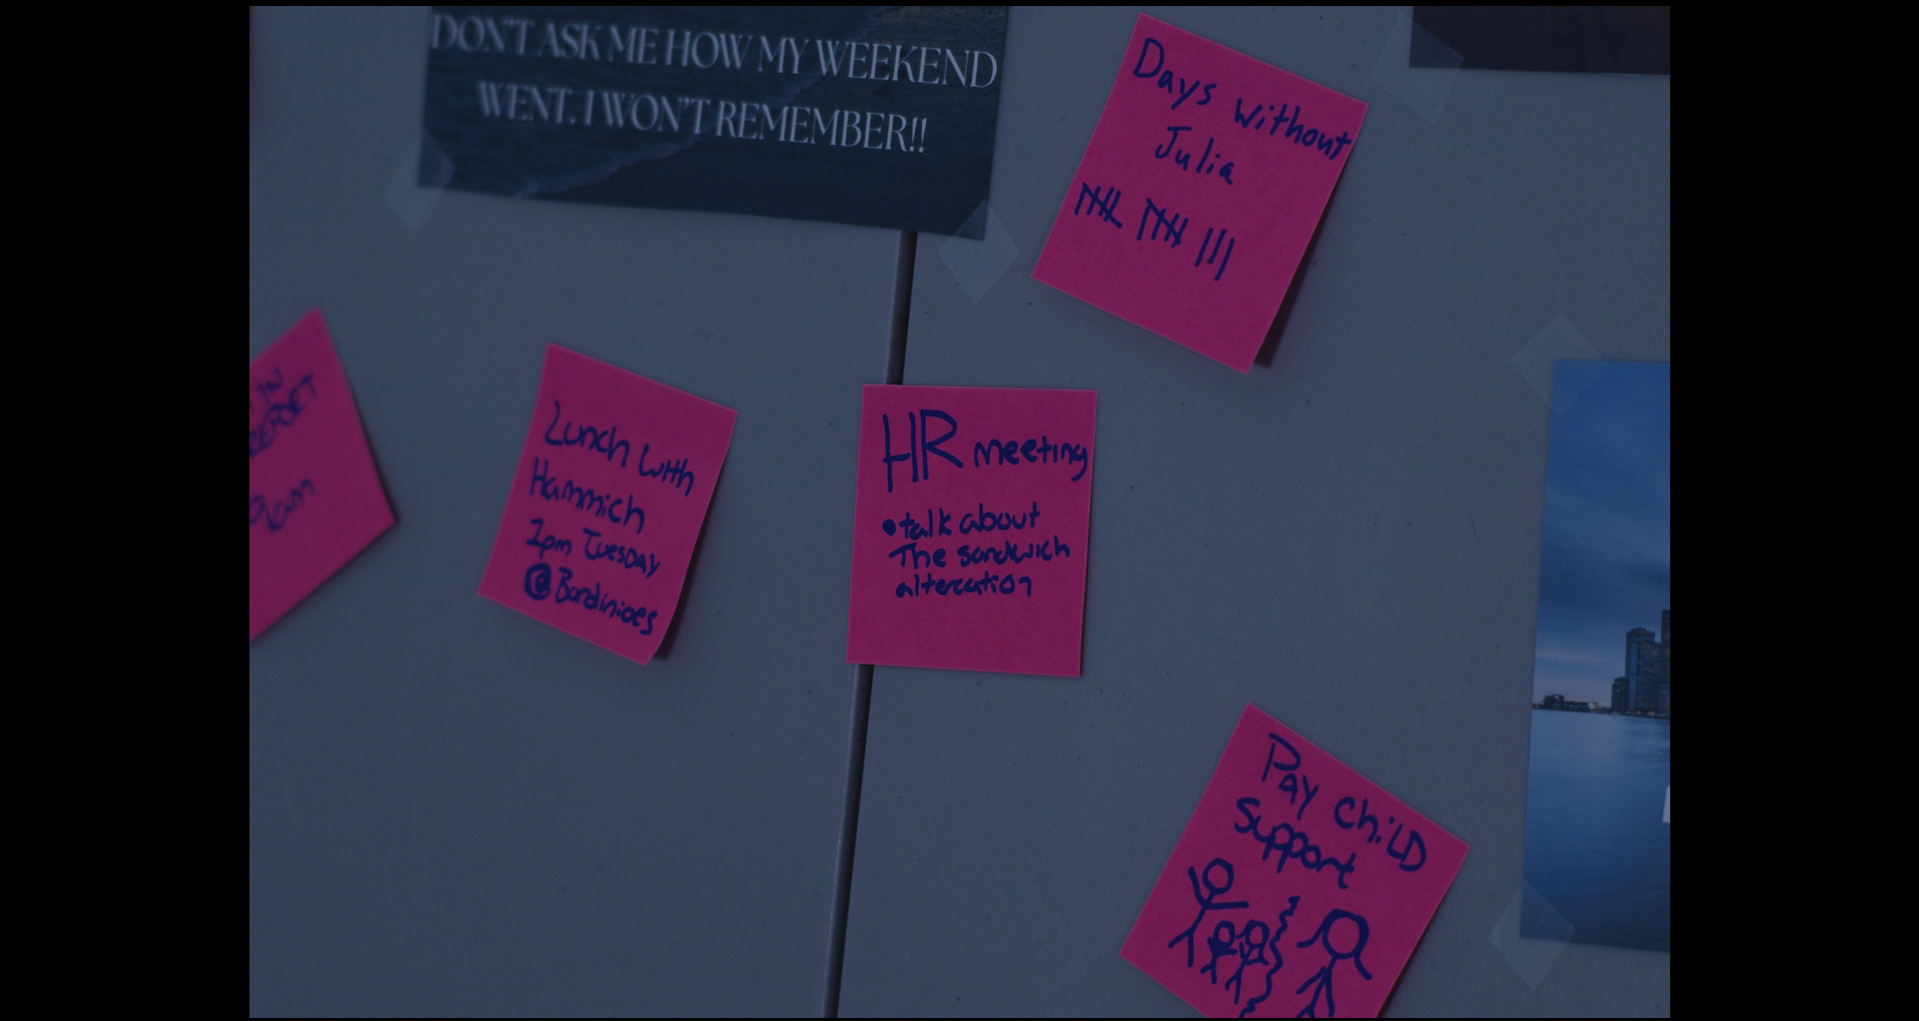 DON'T ASK ME HOW MY WEEKEND
WENT. I WON'T REMEMBER!!
Days without
Julia
IN
REPORT
9am
Lunch with
Hammich
2pm TUESDAY
@Bardinioes
HR meeting
•talk about
The sandwich
altercation
PAY CHiLD
Support